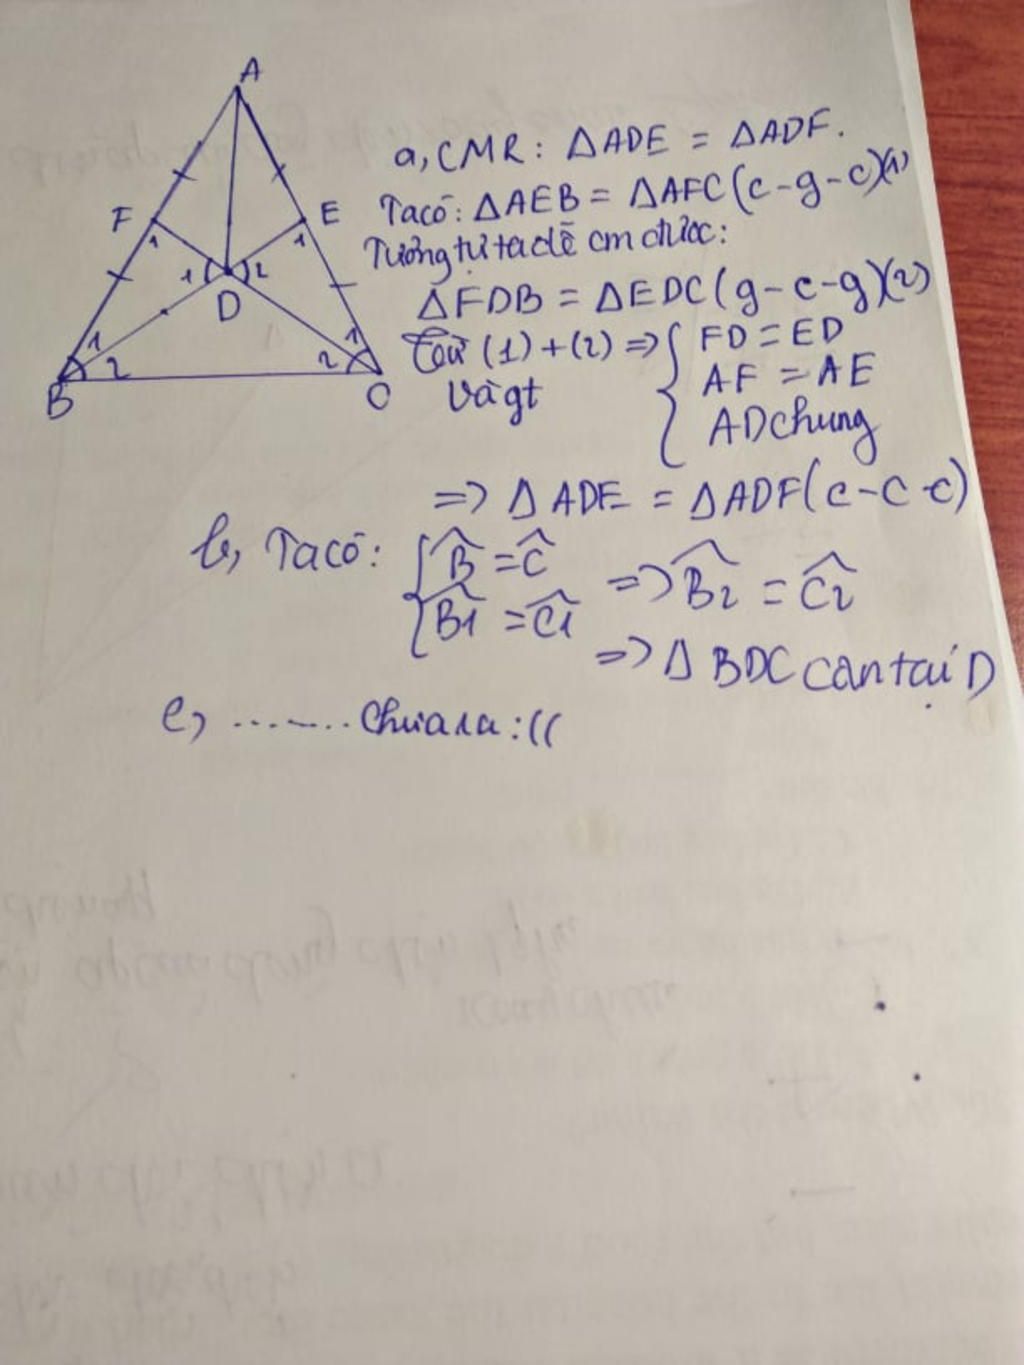 A
F
E
1
1
1
2
D
1
2
1
2
B
C
a, CMR: ΔADE = ΔADF.
Ta có: ΔAEB = ΔAFC (c-g-c)(1)
Tương tự ta dễ cm được:
ΔFDB = ΔEDC (g-c-g)(2)
Từ (1)+(2) => { FD = ED
và gt AF = AE
AD chung
=> ΔADE = ΔADF (c-c-c)
b, Ta có: { B̂ = Ĉ
B̂1 = Ĉ1 => B̂2 = Ĉ2
=> Δ BDC cân tại D
c, ........ Chưa ra :((